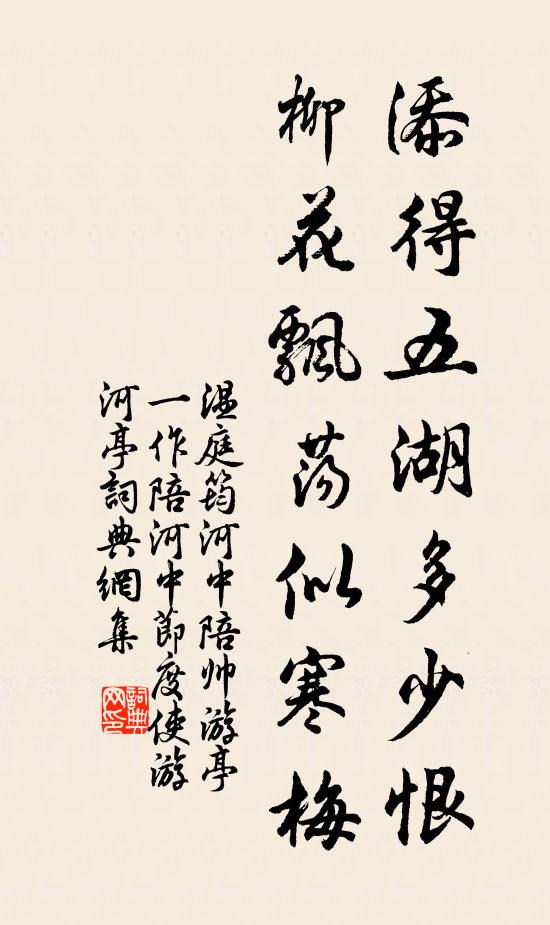 添得五湖多少恨
柳花飄蕩似寒梅
温庭筠河中陪帅游亭
一作陪河中節度使游
河亭詞典網集
詞典
网印